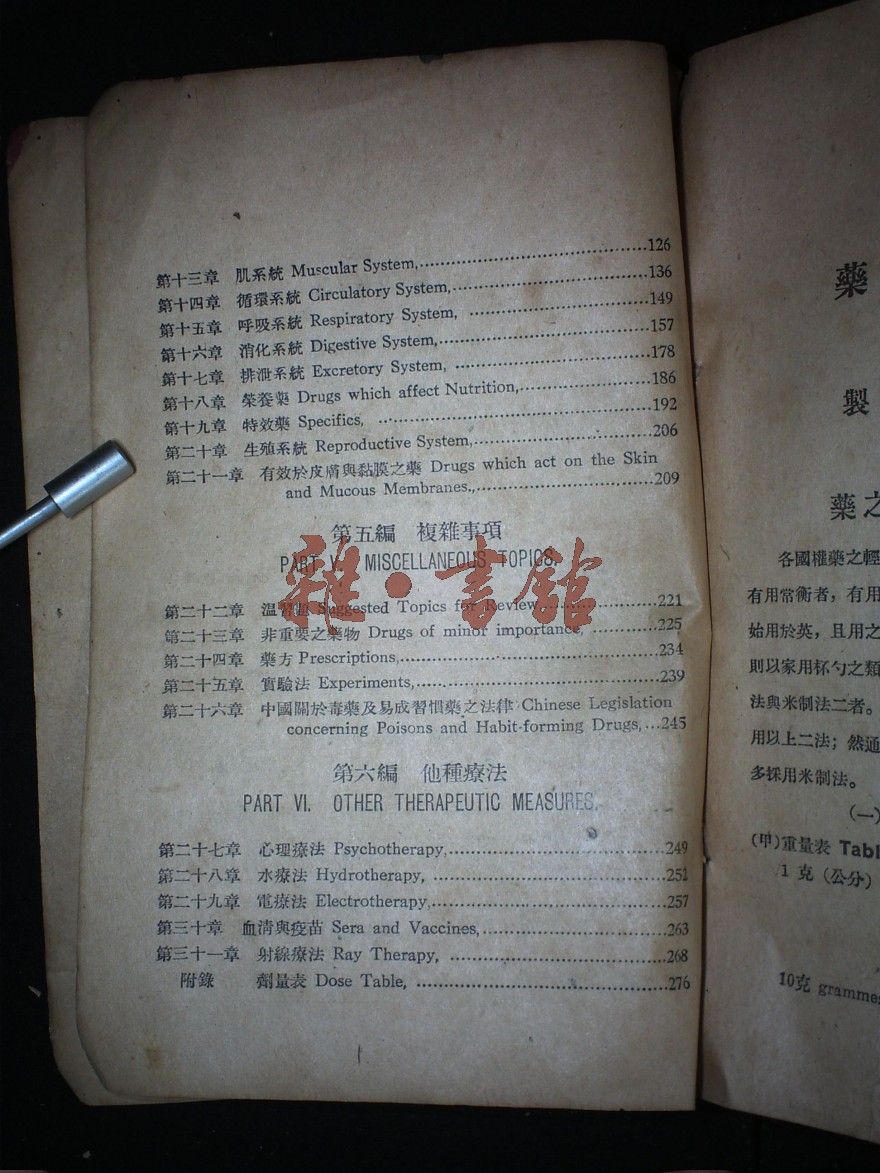 第十三章 肌系統 Muscular System,........126
第十四章 循環系統 Circulatory System,........136
第十五章 呼吸系統 Respiratory System, ........149
第十六章 消化系統 Digestive System,........157
第十七章 排泄系統 Excretory System, ........178
第十八章 榮養藥 Drugs which affect Nutrition,........186
第十九章 特效藥 Specifics, ........192
第二十章 生殖系統 Reproductive System,........206
第二十一章 有效於皮膚與黏膜之藥 Drugs which act on the Skin
and Mucous Membranes.,........209
第五編 複雜事項
PART V. MISCELLANEOUS TOPICS.
雜·書館
第二十二章 温習題 Suggested Topics for Review,........221
第二十三章 非重要之藥物 Drugs of minor importance, ........225
第二十四章 藥方 Prescriptions,........234
第二十五章 實驗法 Experiments,........239
第二十六章 中國關於毒藥及易成習慣藥之法律 Chinese Legislation
concerning Poisons and Habit-forming Drugs,...245
第六編 他種療法
PART VI. OTHER THERAPEUTIC MEASURES.
第二十七章 心理療法 Psychotherapy,........249
第二十八章 水療法 Hydrotherapy, ........252
第二十九章 電療法 Electrotherapy,........257
第三十章 血淸與疫苗 Sera and Vaccines,........263
第三十一章 射線療法 Ray Therapy, ........268
附錄 劑量表 Dose Table, ........276
藥
製
藥之
各國權藥之輕
有用常衡者，有用
始用於英，且用之
則以家用杯勺之類
法與米制法二者。
用以上二法；然通
多採用米制法。
(一)
(甲)重量表 Tabl
1 克 (公分)
10克 gramme